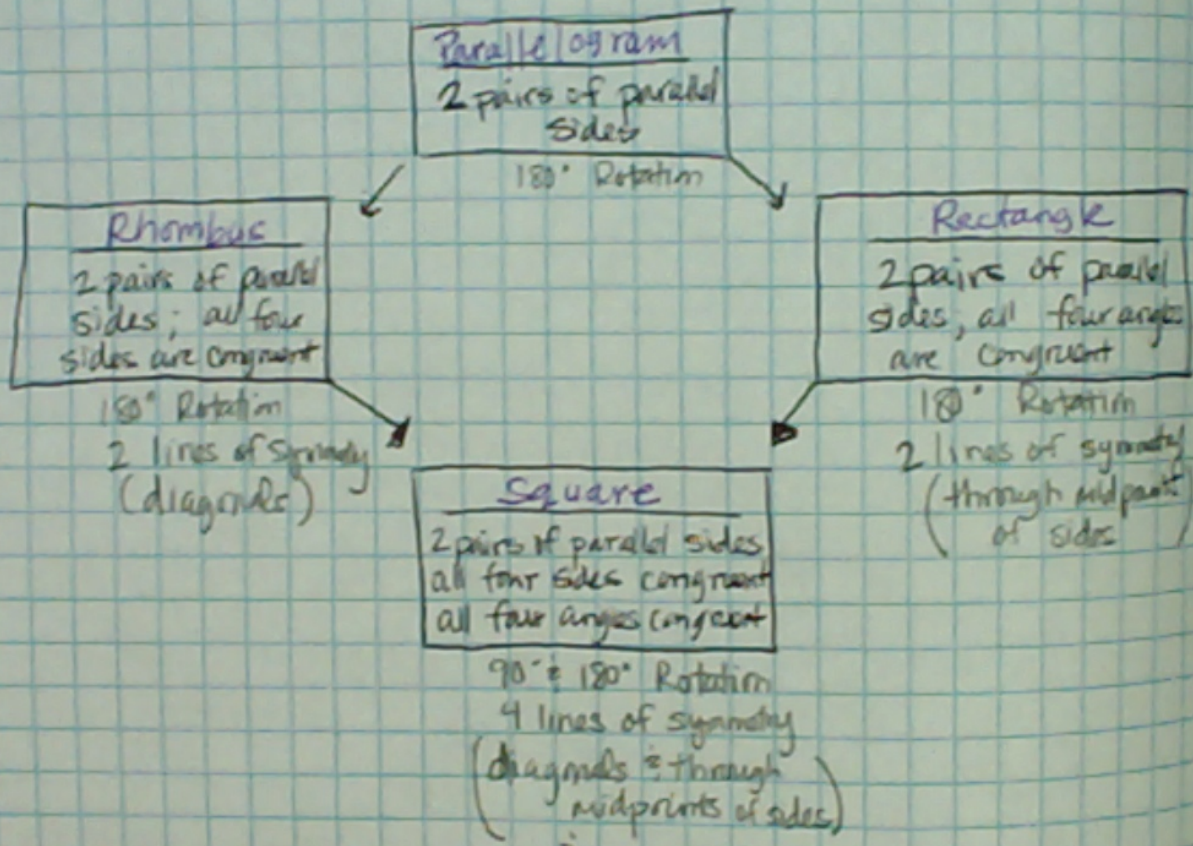 Parallelogram
2 pairs of parallel
sides
180° Rotation
Rhombus
2 pairs of parallel
sides; all four
sides are congruent
180° Rotation
2 lines of symmetry
(diagonals)
Rectangle
2 pairs of parallel
sides, all four angles
are congruent
180° Rotation
2 lines of symmetry
(through midpoint
of sides
Square
2 pairs of parallel sides
all four sides congruent
all four angles congruent
90° & 180° Rotation
4 lines of symmetry
(diagonals & through
midpoints of sides)